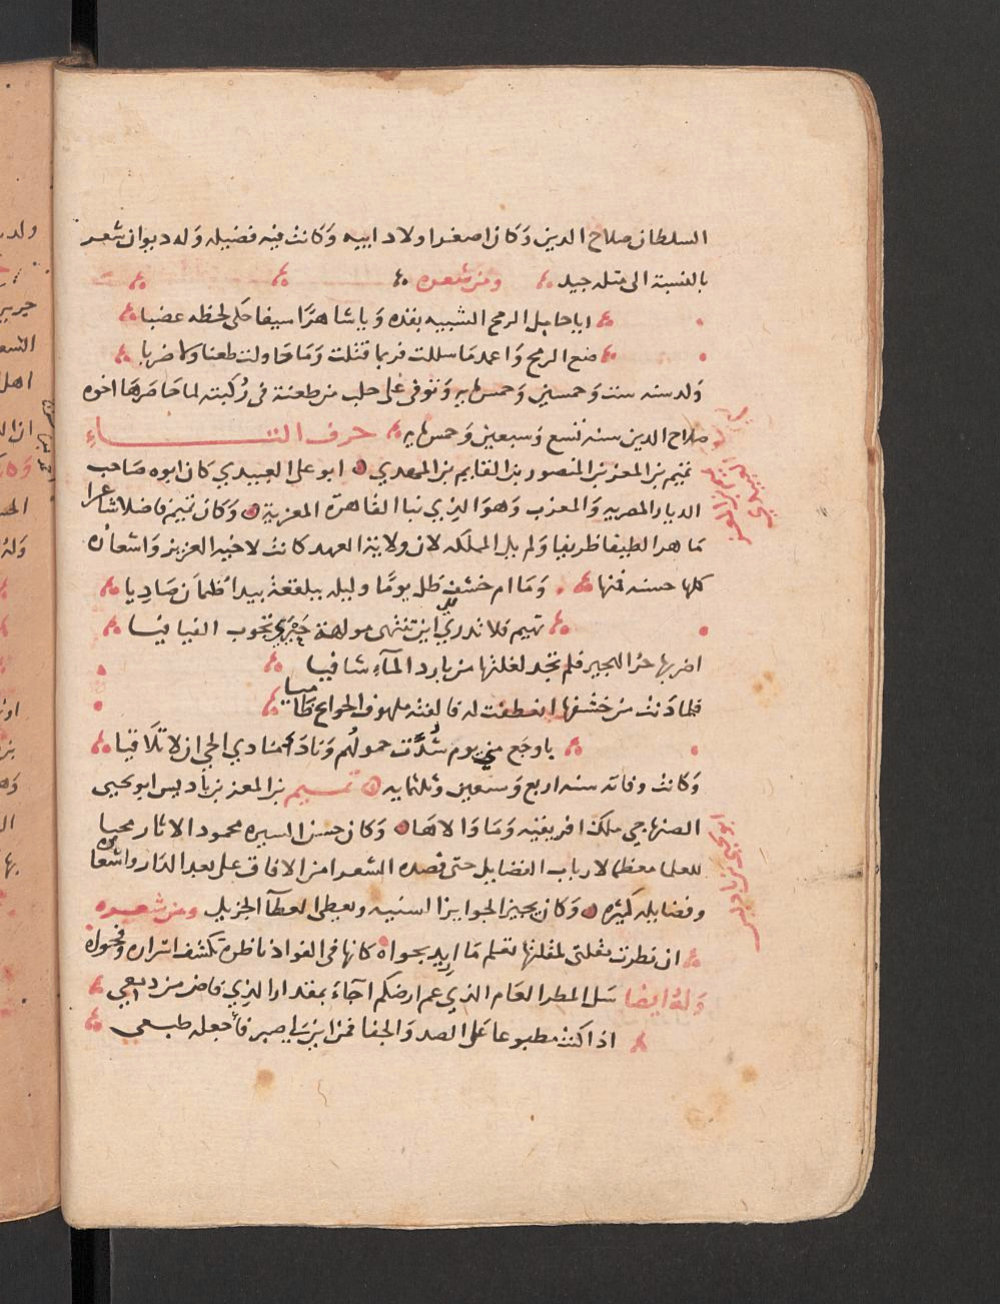 السلطان صلاح الدين وَكان اصغر اولاد ابيه وَكانت فيه فضيله وَله ديوان شعر
بالنسبة الى مثله جيد ومن شعره
ايا حامل الرمح الشبيه بقده وَيا شاهرًا سيفا حكى لحظه عضبا
ضع الرمح وَاغمد ما سللت فربما قتلت وَما حاولت طعنا ولا ضربا
وَلد سنه ست وَخمسين وَخمسمايه وَتوفى على حلب من طعنة فى رُكبته لما حاصرها اخوه
صلاح الدين سنه تسع وَسبعين وَخمسمايه حرف التاءِ
تميم بن المعز بن المنصور بن القايم بن المهدي ابو على العبيدي كان ابوه صَاحب
الديار المصريه وَالمغرب وَهوَ الذي بنا القاهرة المعزية وَكان تميم فاضلا شاعرا
مَاهرا لطيفا ظريفا وَلم يلِ المملكه لان ولاية العهد كانت لاخيه العزيز وَاشعاره
كلها حسنه فمنها وَما ام خشف ظل يومًا وليله ببلقعة بيدا ظمآن صَاديا
تهيم فلا تدري الى اين تنتهى مولهة حَيْرَي تجوب الفيافيَا
اضر بها حرُ الهجير فلم تجد لغلتها من بارد المآءِ شافيا
فلما دَنت من خشفها انعطفت له فالفته ملهوف الجوانح ظَاميا
باوجَع مني يوم شُدَّت حمولُهم وَنادَا منادي الحى ان لا تلَاقيا
وَكانت وفاته سنه اربع وَسبعين وَثلثمايه تميم بن المعز بن باديس ابو يحيى
الصنهاجي ملك افريقيه وَمَا وَالاهَا وَكان حسن السيره محمود الاثار محبا
للعلما معظما لارباب الفضايل حتى قصده الشعرا من الافاق على بعد الدار واشعاره
وفضايله كثيره وَكان يجيز الجوايز السنيه ويعطى العطآ الجزيل ومن شعره
ان نظرت مقلتى لمقلتها تعلم مَا اريد نجواه كانها فى الفواد ناظرة تكشف اسراره وَفحواه
وَلهُ ايضا سَل المطر العَام الذي عم ارضكم آجاءَ بمقدار الذي فاض من دمعي
اذا كنت مطبوعا عَلى الصد وَالجفا فمن اين لي صبر فأجعله طبعي